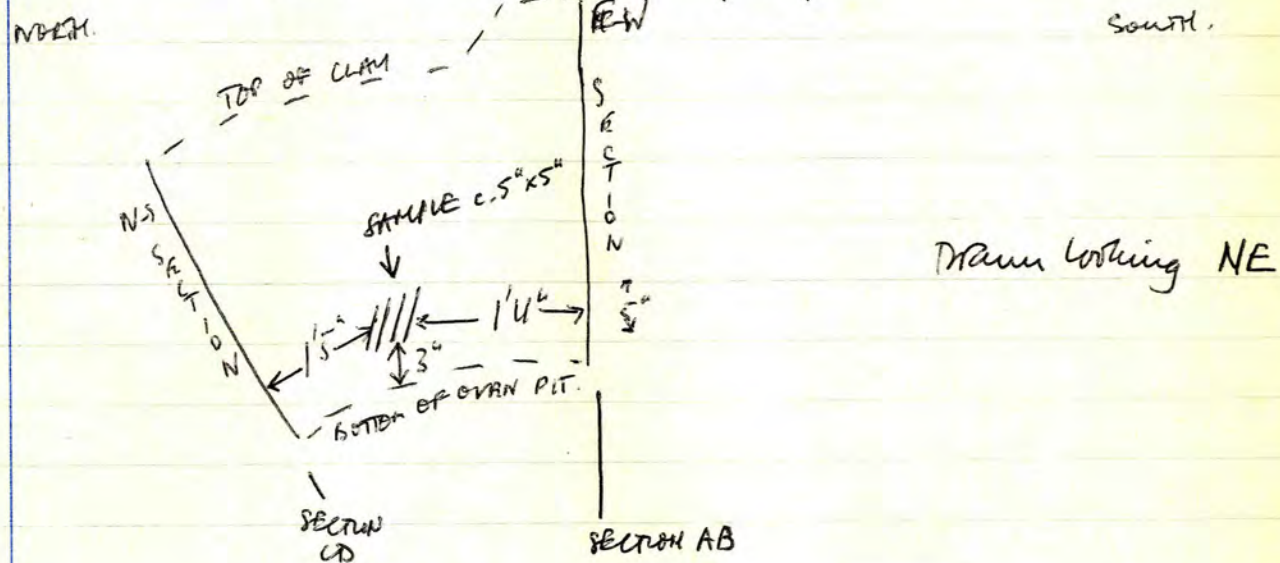 NORTH.
E-W
SOUTH.
TOP OF CLAY
SECTION
SAMPLE c. 5" x 5"
N-S
SECTION
Drawn looking NE
1'5"
1'4"
5"
3"
BOTTOM OF OVEN PIT.
SECTION
CD
SECTION AB